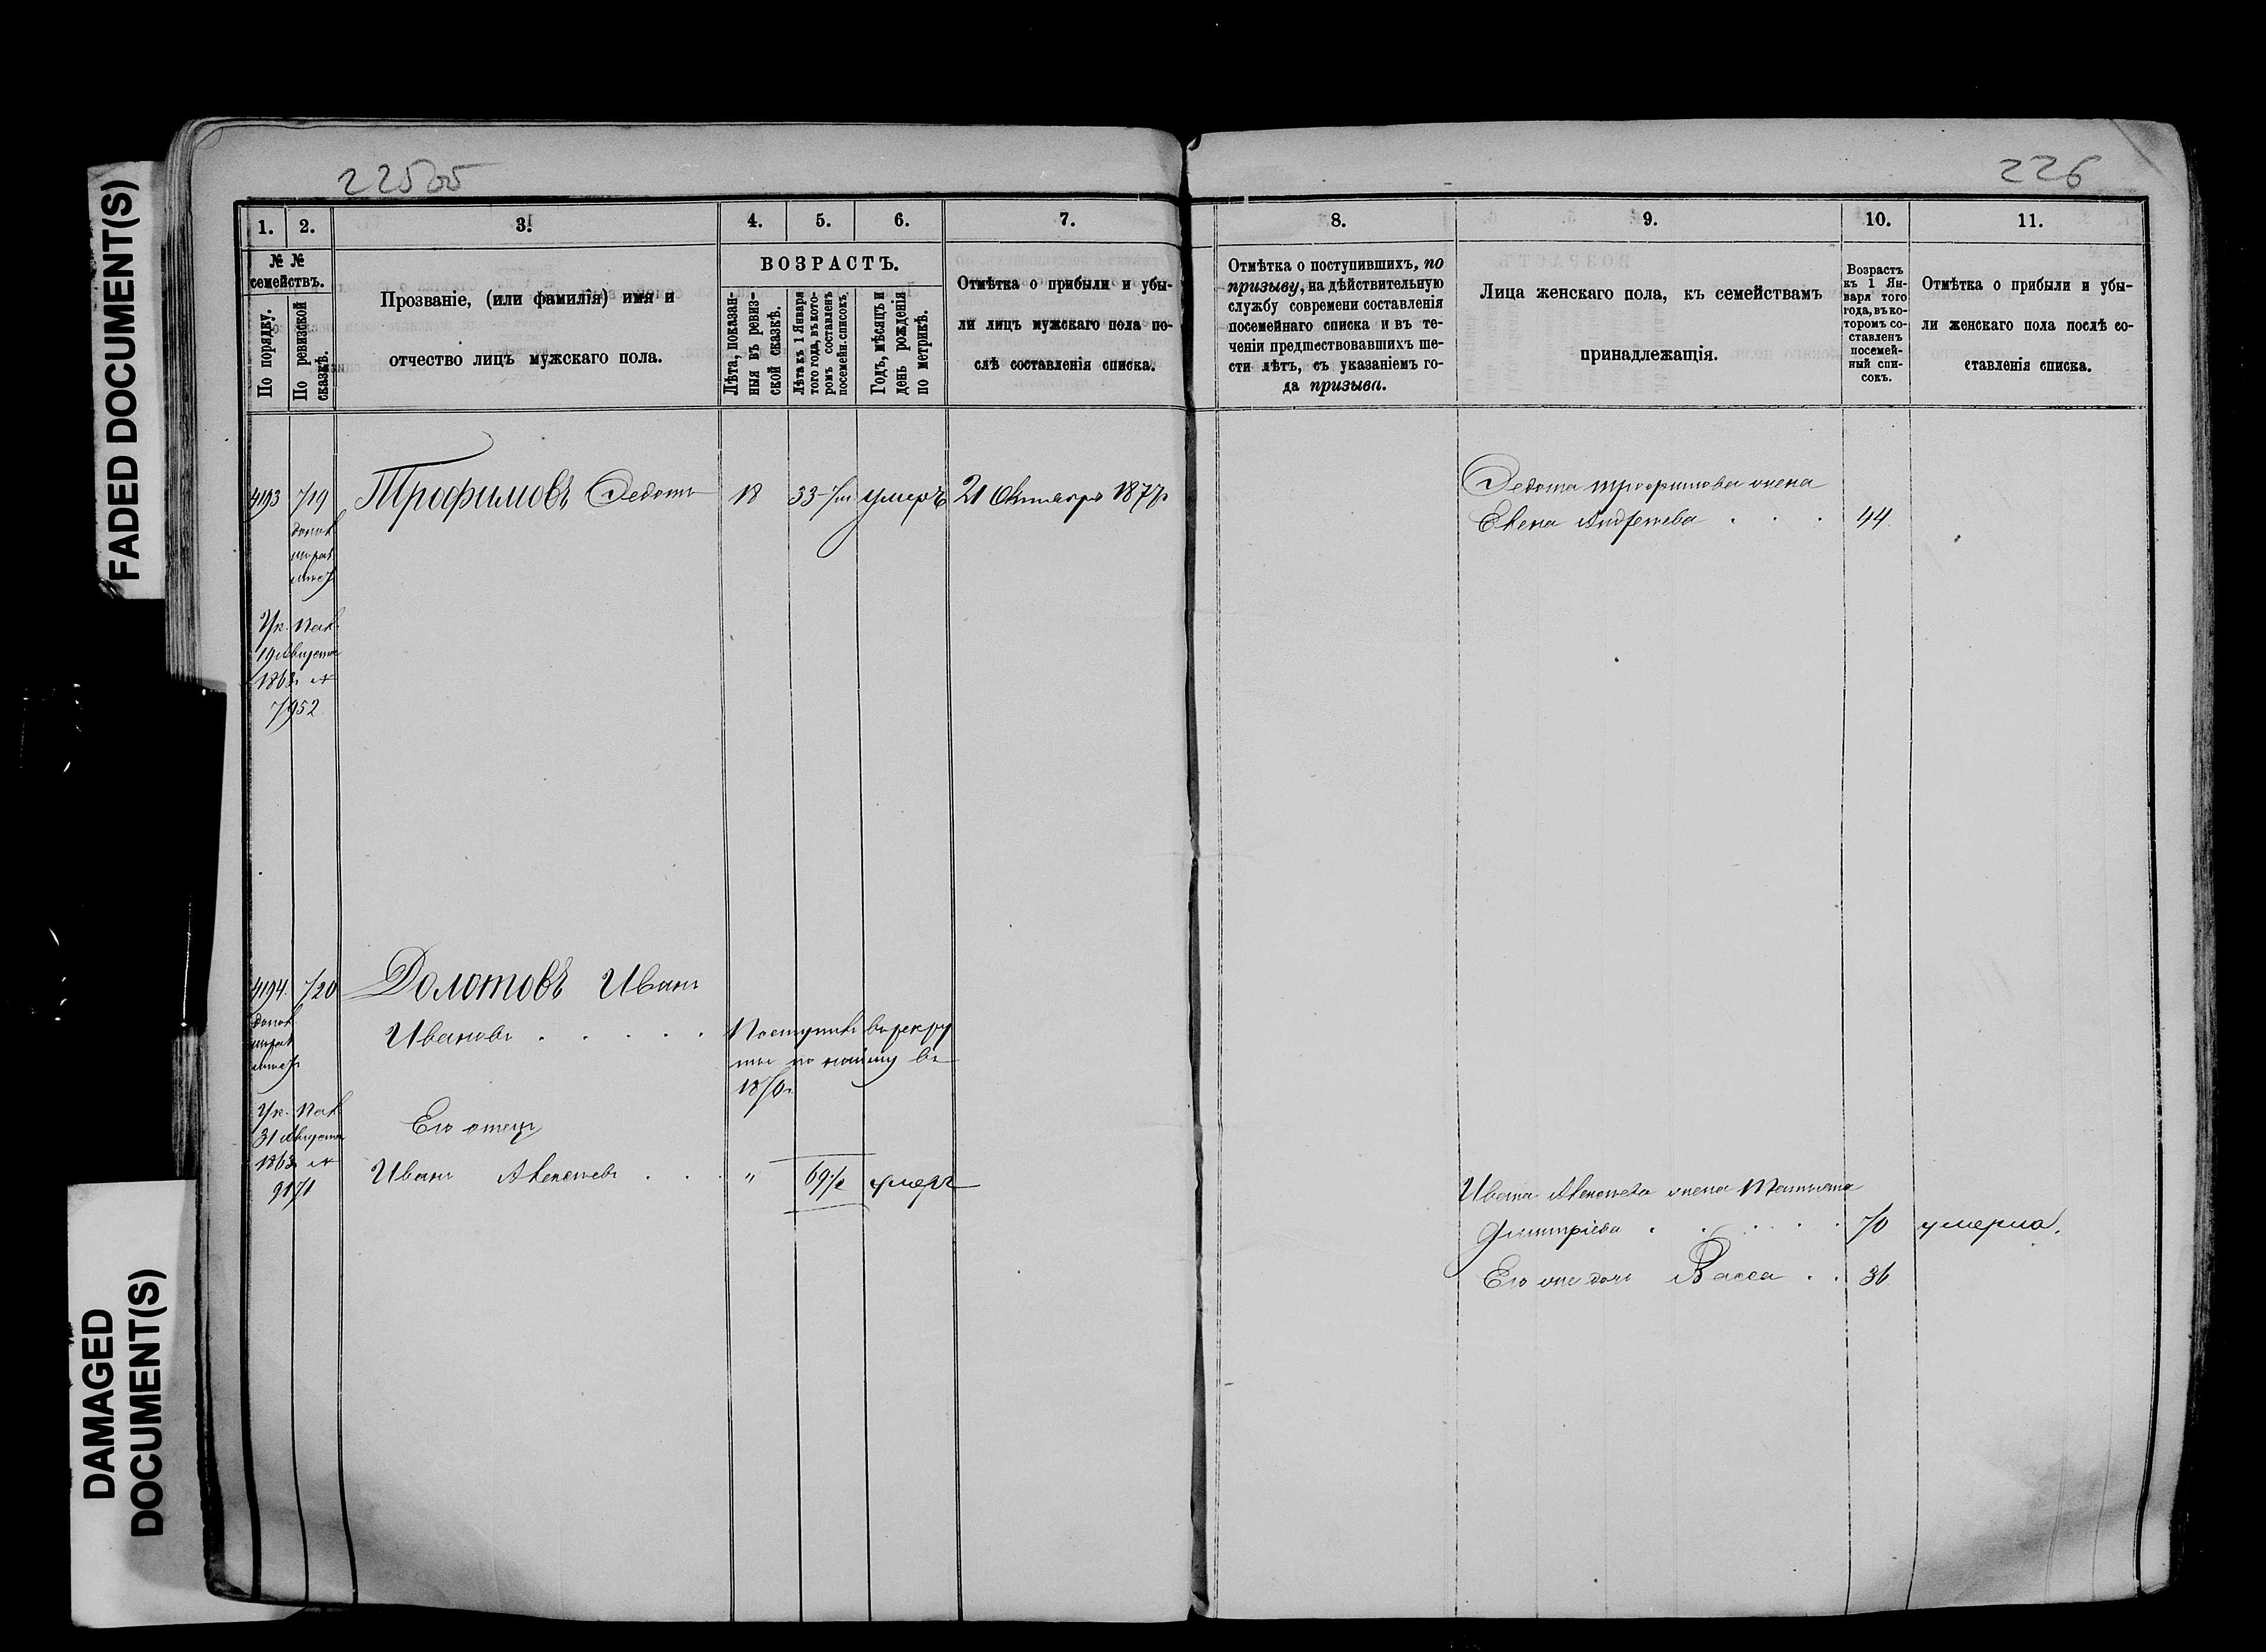 FADED DOCUMENT(S)
DAMAGED
DOCUMENT(S)
225об
1. 2. 3. 4. 5. 6. 7.
№ №
семействъ.
По порядку.
По ревизской
сказкѣ.
Прозваніе, (или фамилія) имя и
отчество лицъ мужскаго пола.
ВОЗРАСТЪ.
Лѣта, показан-
ныя въ ревиз-
ской сказкѣ.
Лѣта къ 1 Января
того года, въ кото-
ромъ составленъ
посемейн. списокъ.
Годъ, мѣсяцъ и
день рожденія
по метрикѣ.
Отмѣтка о прибыли и убы-
ли лицъ мужскаго пола по-
слѣ составленія списка.
4193 719 Трофимовъ Федотъ 18 33 умеръ 21 Октября 1877г
допол
Ук. Пал.
19 Августа
1863г №
7952
4194 720 Долотовъ Иванъ
допол
Ивановъ . . . . . Поступилъ въ рекру
ты по найму въ
Ук. Пал.
31 Августа
1863г №
9171
Его отецъ
Иванъ Алексѣевъ . . . " 69 умеръ
226
8. 9. 10. 11.
Отмѣтка о поступившихъ, по
призыву, на дѣйствительную
службу современи составленія
посемейнаго списка и въ те-
ченіи предшествовавшихъ ше-
сти лѣтъ, съ указаніемъ го-
да призыва.
Лица женскаго пола, къ семействамъ
принадлежащія.
Возрастъ
къ 1 Ян-
варя того
года, въ ко-
торомъ со-
ставленъ
посемей-
ный спи-
сокъ.
Отмѣтка о прибыли и убы-
ли женскаго пола послѣ со-
ставленія списка.
Федота Трофимова жена
Елена Андреева . . . 44
Ивана Алексѣева жена Татьяна
Дмитріева . . . . . 70 умерла.
Его же дочь Васса . . 36